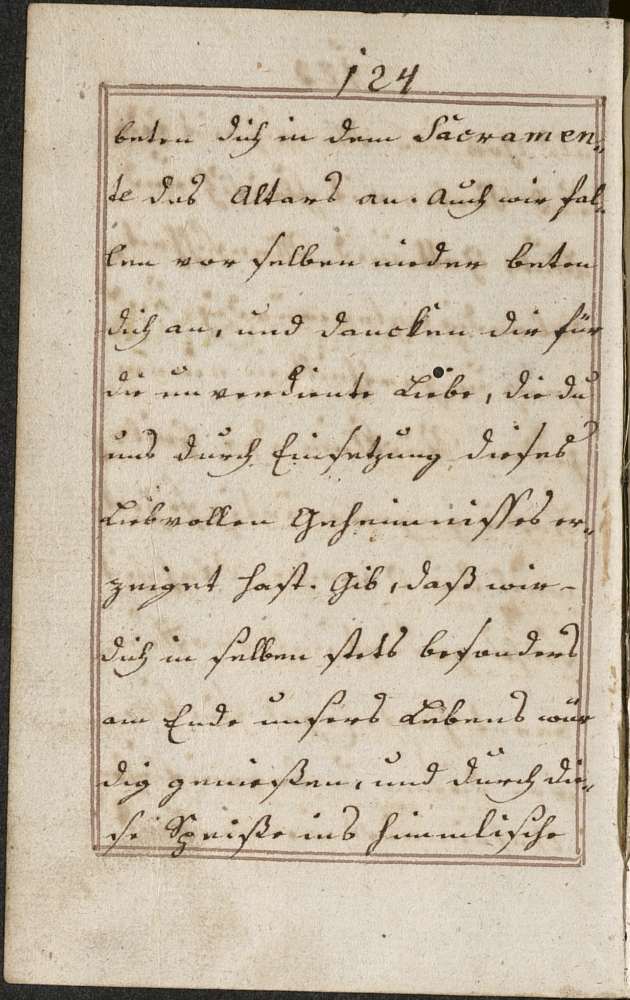 124
beten dich in dem Sacramen-
te des Altars an. Auch wir fal-
len vor selben nieder beten
dich an, und dancken dir für
die unverdiente Liebe, die du
uns durch Einsetzung dieses
Liebvollen Geheimnisses er-
zeiget hast. Gib, daß wir
dich in selben stets besonders
am Ende unsers Lebens wür
dig genießen, und durch die-
se Speiße ins himmlische